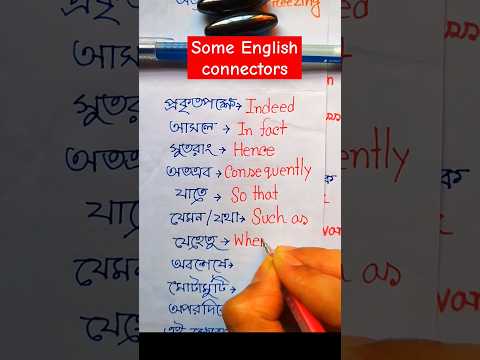 Some English
connectors
প্রকৃতপক্ষে → Indeed
আসলে → In fact
সুতরাং → Hence
অতএব → Consequently
যাতে → So that
যেমন/যথা → Such as
যেহেতু → Whe
অবশেষে →
মোটামুটি →
অপরদি